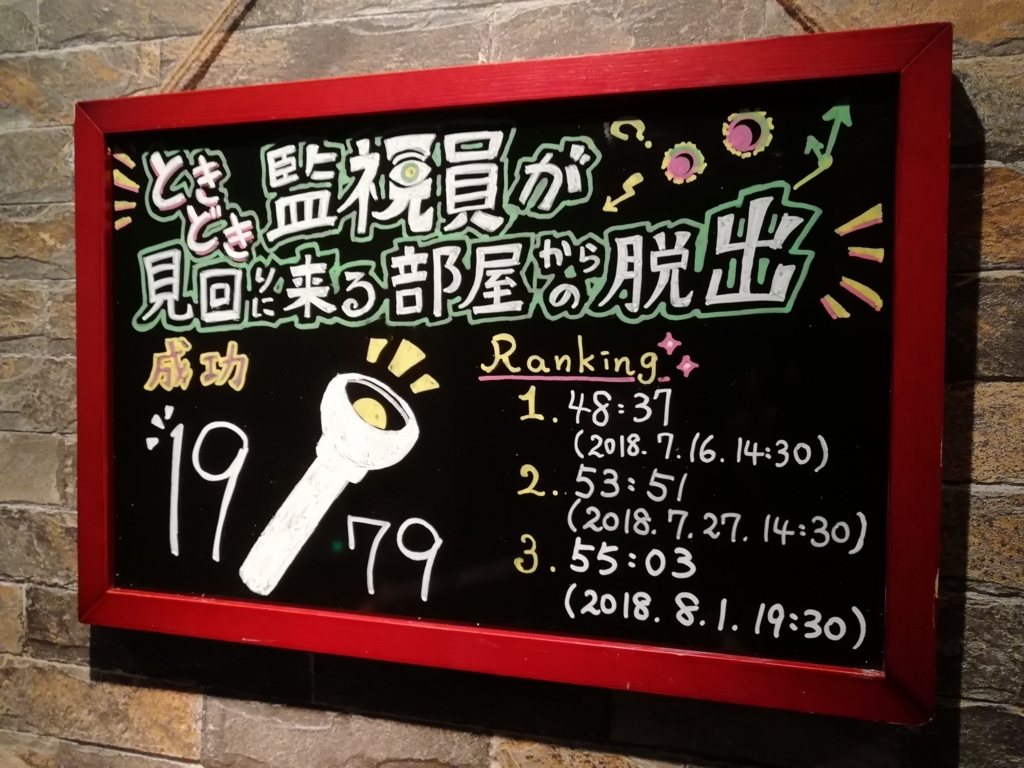 ときどき監視員が
見回りに来る部屋からの脱出
成功
19
79
Ranking
1. 48:37
(2018.7.16.14:30)
2. 53:51
(2018.7.27.14:30)
3. 55:03
(2018.8.1.19:30)